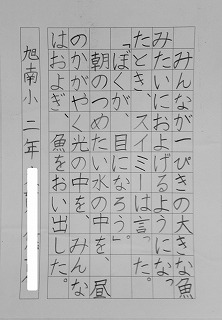 みんなが一ぴきの大きな魚
みたいにおよげるようになっ
たとき、スイミーは言った。
「ぼくが、目になろう。」
朝のつめたい水の中を、昼
のかがやく光の中を、みんな
はおよぎ、魚をおい出した。
旭南小 二年